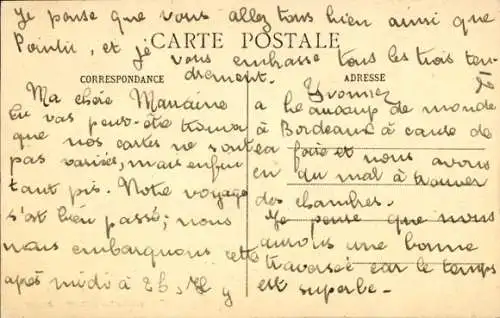 Je pense que vous allez tous bien ainsi que
et je vous embrasse tous les trois ten-
drement.
Yvonne
CARTE POSTALE
CORRESPONDANCE
ADRESSE
Ma chère Marraine
Tu vas peut-être trouver
que nos cartes ne sont
pas variées, mais enfin
tant pis. Notre voyage
s'est bien passé; nous
nous embarquons cette
après midi à 2h, Il y
a beaucoup de monde
à Bordeaux à cause de
la foire et nous avons
eu du mal à trouver
des chambres.
Je pense que nous
aurons une bonne
traversée car le temps
est superbe-